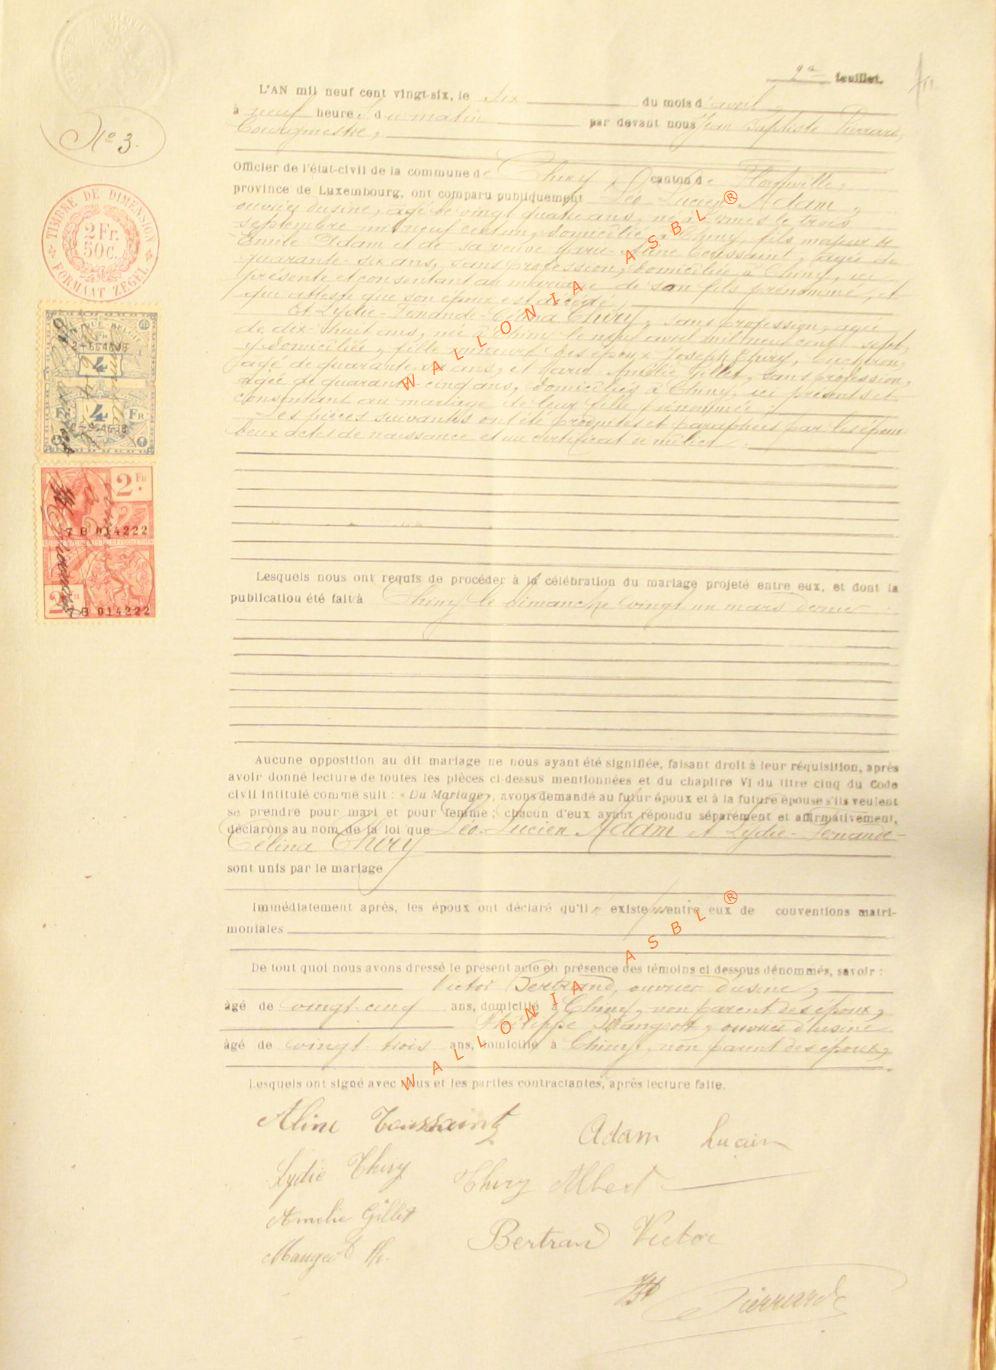 2e feuillet.
No 3.
L'AN mil neuf cent vingt-six, le six du mois d'avril,
à neuf heures du matin par devant nous Jean Baptiste Pierrard,
bourgmestre,
Officier de l'état-civil de la commune de Chiny, canton de Florenville,
province de Luxembourg, ont comparu publiquement Léo-Lucien Adam,
ouvrier d'usine, agé de vingt quatre ans, né à Izel le trois
septembre mil neuf cent un, domicilié à Chiny, fils majeur de
Emile Adam et de sa veuve Marie-Aline Toussaint, agée de
quarante-six ans, sans profession, domiciliée à Chiny, ici
présente et consentant au mariage de son fils prénommé, et
qui atteste que son époux est décédé,
Et Lydie-Fernande-Célina Thiry, sans profession, agée
de dix-huit ans, née à Chiny le neuf avril mil neuf cent sept,
y domiciliée, fille mineure des époux Joseph Thiry, bucheron,
agé de quarante ans, et Marie Amélie Gillet, sans profession,
agée de quarante cinq ans, domiciliés à Chiny, ici présents et
consentant au mariage de leur fille prénommée
Les pièces suivantes ont été produites et paraphées par les époux
deux actes de naissance et un certificat de milice
Lesquels nous ont requis de procéder à la célébration du mariage projeté entre eux, et dont la
publication été fait à Chiny le dimanche vingt un mars dernier
Aucune opposition au dit mariage ne nous ayant été signifiée, faisant droit à leur réquisition, après
avoir donné lecture de toutes les pièces ci-dessus mentionnées et du chapitre VI du titre cinq du Code
civil intitulé comme suit : « Du Mariage », avons demandé au futur époux et à la future épouse s'ils veulent
se prendre pour mari et pour femme ; chacun d'eux ayant répondu séparément et affirmativement,
déclarons au nom de la loi que Léo-Lucien Adam et Lydie-Fernande-
Célina Thiry
sont unis par le mariage
Immédiatement après, les époux ont déclaré qu'il n'existe entre eux de conventions matri-
moniales
De tout quoi nous avons dressé le présent acte en présence des témoins ci dessous dénommés, savoir :
Victor Bertrand, ouvrier d'usine,
âgé de vingt-cinq ans, domicilié à Chiny, non parent des époux,
Philippe Mangeot, ouvrier d'usine
âgé de vingt-trois ans, domicilié à Chiny, non parent des époux,
Lesquels ont signé avec nous et les parties contractantes, après lecture faite.
Aline Toussaint
Adam Lucien
Lydie Thiry
Thiry Albert
Amélie Gillet
Bertrand Victor
Mangeot Ph.
JB Pierrard
TIMBRE DE DIMENSION
2 Fr.
50C.
FORMAAT ZEGEL
4
4
FR
2 FR
7 B 014222
2 FR
7 B 014222
WALLONIA ASBL ®
WALLONIA ASBL ®